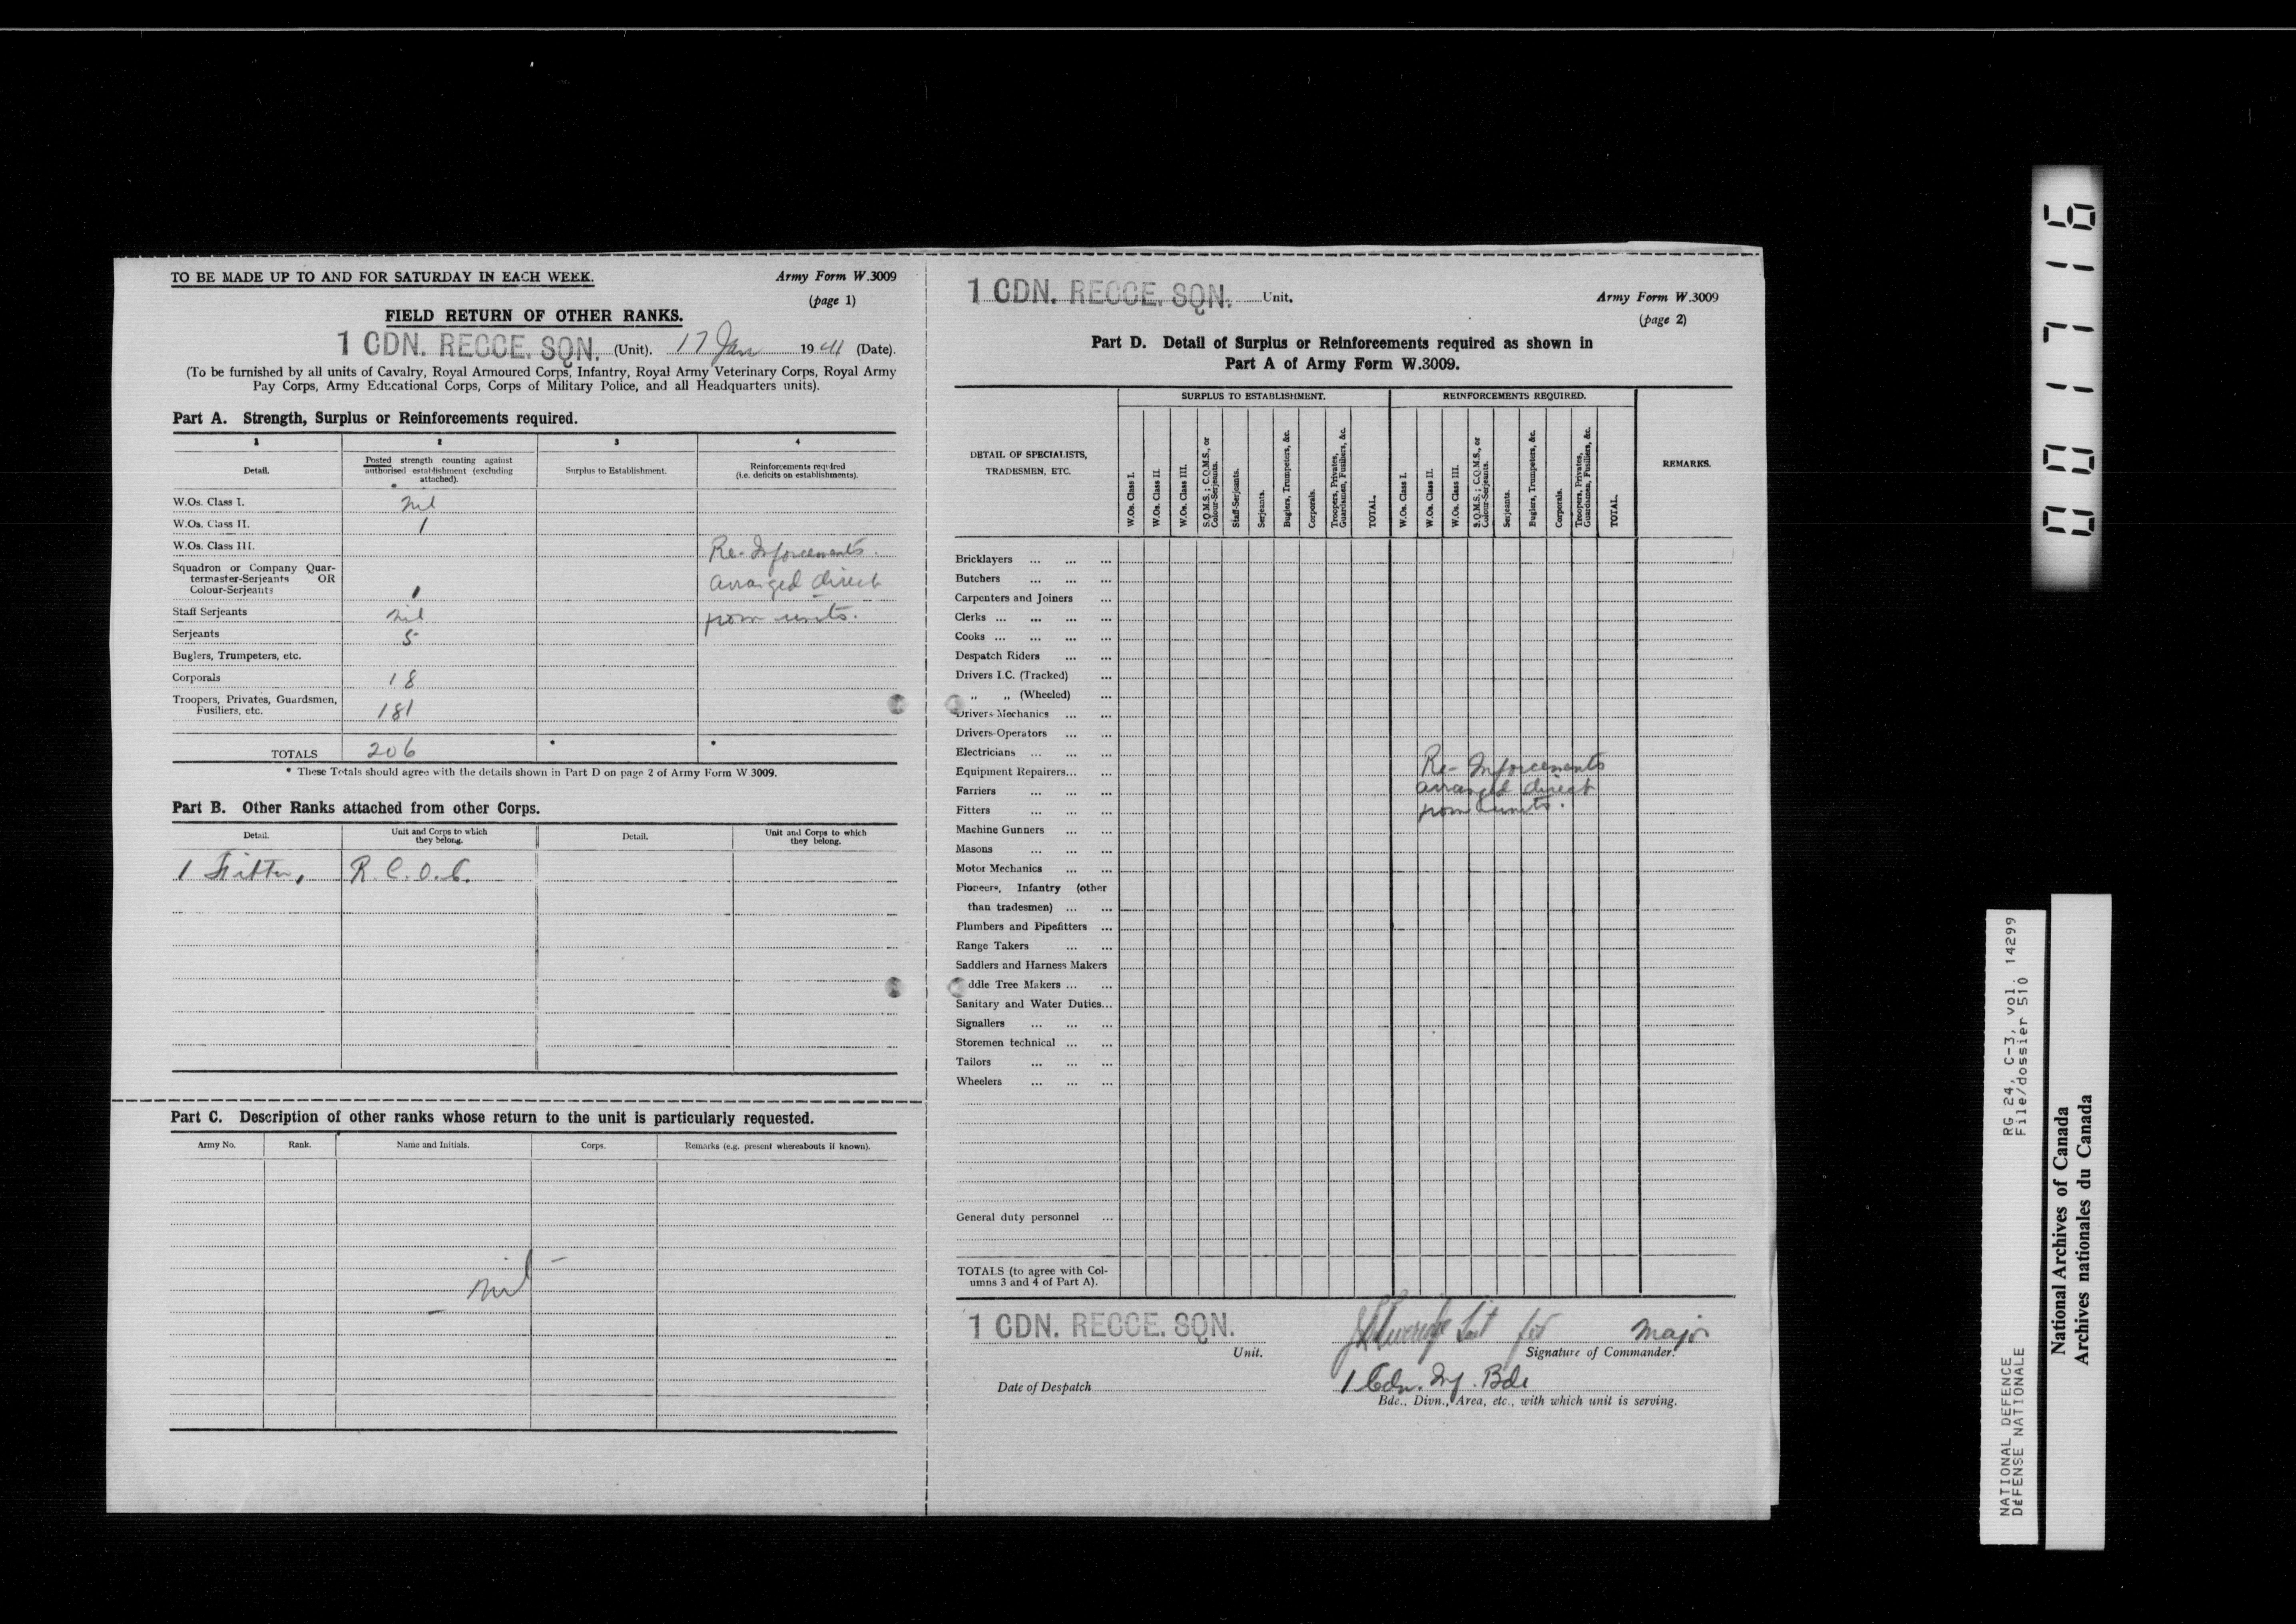 TO BE MADE UP TO AND FOR SATURDAY IN EACH WEEK.
Army Form W.3009
(page 1)
FIELD RETURN OF OTHER RANKS.
1 CDN. RECCE. SQN. (Unit). 17 Jan 1941 (Date).
(To be furnished by all units of Cavalry, Royal Armoured Corps, Infantry, Royal Army Veterinary Corps, Royal Army
Pay Corps, Army Educational Corps, Corps of Military Police, and all Headquarters units).
Part A. Strength, Surplus or Reinforcements required.
1 2 3 4
Detail.
Posted strength counting against
authorised establishment (excluding
attached).
Surplus to Establishment.
Reinforcements required
(i.e. deficits on establishments).
W.Os. Class I. Nil
W.Os. Class II. 1
W.Os. Class III.
Squadron or Company Quar-
termaster-Serjeants OR
Colour-Serjeants 1
Staff Serjeants Nil
Serjeants 5
Buglers, Trumpeters, etc.
Corporals 18
Troopers, Privates, Guardsmen,
Fusiliers, etc. 181
Re-Inforcements
arranged direct
from units.
TOTALS 206 * *
* These Totals should agree with the details shown in Part D on page 2 of Army Form W.3009.
Part B. Other Ranks attached from other Corps.
Detail.
Unit and Corps to which
they belong.
Detail.
Unit and Corps to which
they belong.
1 Fitter, R.C.O.C.
Part C. Description of other ranks whose return to the unit is particularly requested.
Army No. Rank. Name and Initials. Corps. Remarks (e.g. present whereabouts if known).
- Nil -
1 CDN. RECCE. SQN. Unit.
Army Form W.3009
(page 2)
Part D. Detail of Surplus or Reinforcements required as shown in
Part A of Army Form W.3009.
DETAIL OF SPECIALISTS,
TRADESMEN, ETC.
SURPLUS TO ESTABLISHMENT.
W.Os. Class I.
W.Os. Class II.
W.Os. Class III.
S.Q.M.S.; C.Q.M.S., or
Colour-Serjeants.
Staff-Serjeants.
Serjeants.
Buglers, Trumpeters, &c.
Corporals.
Troopers, Privates,
Guardsmen, Fusiliers, &c.
TOTAL.
REINFORCEMENTS REQUIRED.
W.Os. Class I.
W.Os. Class II.
W.Os. Class III.
S.Q.M.S.; C.Q.M.S., or
Colour-Serjeants.
Serjeants.
Buglers, Trumpeters, &c.
Corporals.
Troopers, Privates,
Guardsmen, Fusiliers, &c.
TOTAL.
REMARKS.
Bricklayers ... ... ...
Butchers ... ... ...
Carpenters and Joiners ...
Clerks ... ... ... ...
Cooks ... ... ... ...
Despatch Riders ... ...
Drivers I.C. (Tracked) ...
„ „ (Wheeled) ...
Drivers-Mechanics ... ...
Drivers-Operators ... ...
Electricians ... ... ...
Equipment Repairers... ...
Farriers ... ... ...
Fitters ... ... ...
Machine Gunners ... ...
Masons ... ... ...
Motor Mechanics ... ...
Pioneers, Infantry (other
than tradesmen) ... ...
Plumbers and Pipefitters ...
Range Takers ... ...
Saddlers and Harness Makers
ddle Tree Makers ... ...
Sanitary and Water Duties...
Signallers ... ... ...
Storemen technical ... ...
Tailors ... ... ...
Wheelers ... ... ...
Re-Inforcements
arranged direct
from units.
General duty personnel ...
TOTALS (to agree with Col-
umns 3 and 4 of Part A).
1 CDN. RECCE. SQN.
Unit.
Lieut for Major
Signature of Commander.
Date of Despatch
1 Cdn. Inf. Bde
Bde., Divn., Area, etc., with which unit is serving.
001716
NATIONAL DEFENCE RG 24, C-3, vol. 14299
DÉFENSE NATIONALE File/dossier 510
National Archives of Canada
Archives nationales du Canada